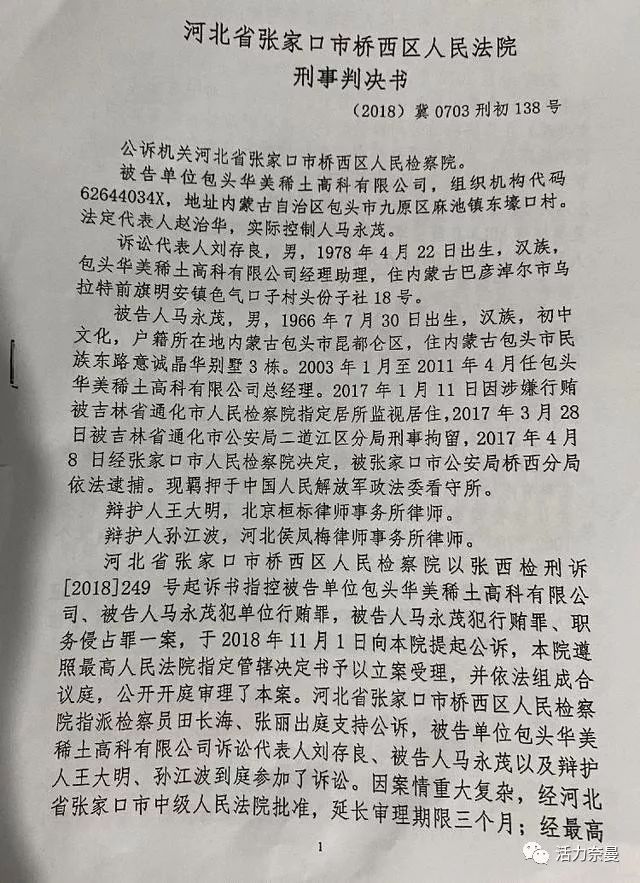 河北省张家口市桥西区人民法院
刑事判决书
（2018）冀 0703 刑初 138 号
公诉机关河北省张家口市桥西区人民检察院。
被告单位包头华美稀土高科有限公司，组织机构代码
62644034X，地址内蒙古自治区包头市九原区麻池镇东壕口村。
法定代表人赵治华，实际控制人马永茂。
诉讼代表人刘存良，男，1978 年 4 月 22 日出生，汉族，
包头华美稀土高科有限公司经理助理，住内蒙古巴彦淖尔市乌
拉特前旗明安镇色气口子村头份子社 18 号。
被告人马永茂，男，1966 年 7 月 30 日出生，汉族，初中
文化，户籍所在地内蒙古包头市昆都仑区，住内蒙古包头市民
族东路意诚晶华别墅 3 栋。2003 年 1 月至 2011 年 4 月任包头
华美稀土高科有限公司总经理。2017 年 1 月 11 日因涉嫌行贿
被吉林省通化市人民检察院指定居所监视居住，2017 年 3 月 28
日被吉林省通化市公安局二道江区分局刑事拘留，2017 年 4 月
8 日经张家口市人民检察院决定，被张家口市公安局桥西分局
依法逮捕。现羁押于中国人民解放军政法委看守所。
辩护人王大明，北京桓标律师事务所律师。
辩护人孙江波，河北侯凤梅律师事务所律师。
河北省张家口市桥西区人民检察院以张西检刑诉
[2018]249 号起诉书指控被告单位包头华美稀土高科有限公
司、被告人马永茂犯单位行贿罪，被告人马永茂犯行贿罪、职
务侵占罪一案，于 2018 年 11 月 1 日向本院提起公诉，本院遵
照最高人民法院指定管辖决定书予以立案受理，并依法组成合
议庭，公开开庭审理了本案。河北省张家口市桥西区人民检察
院指派检察员田长海、张丽出庭支持公诉，被告单位包头华美
稀土高科有限公司诉讼代表人刘存良、被告人马永茂以及辩护
人王大明、孙江波到庭参加了诉讼。因案情重大复杂，经河北
省张家口市中级人民法院批准，延长审理期限三个月；经最高
1
活力奈曼